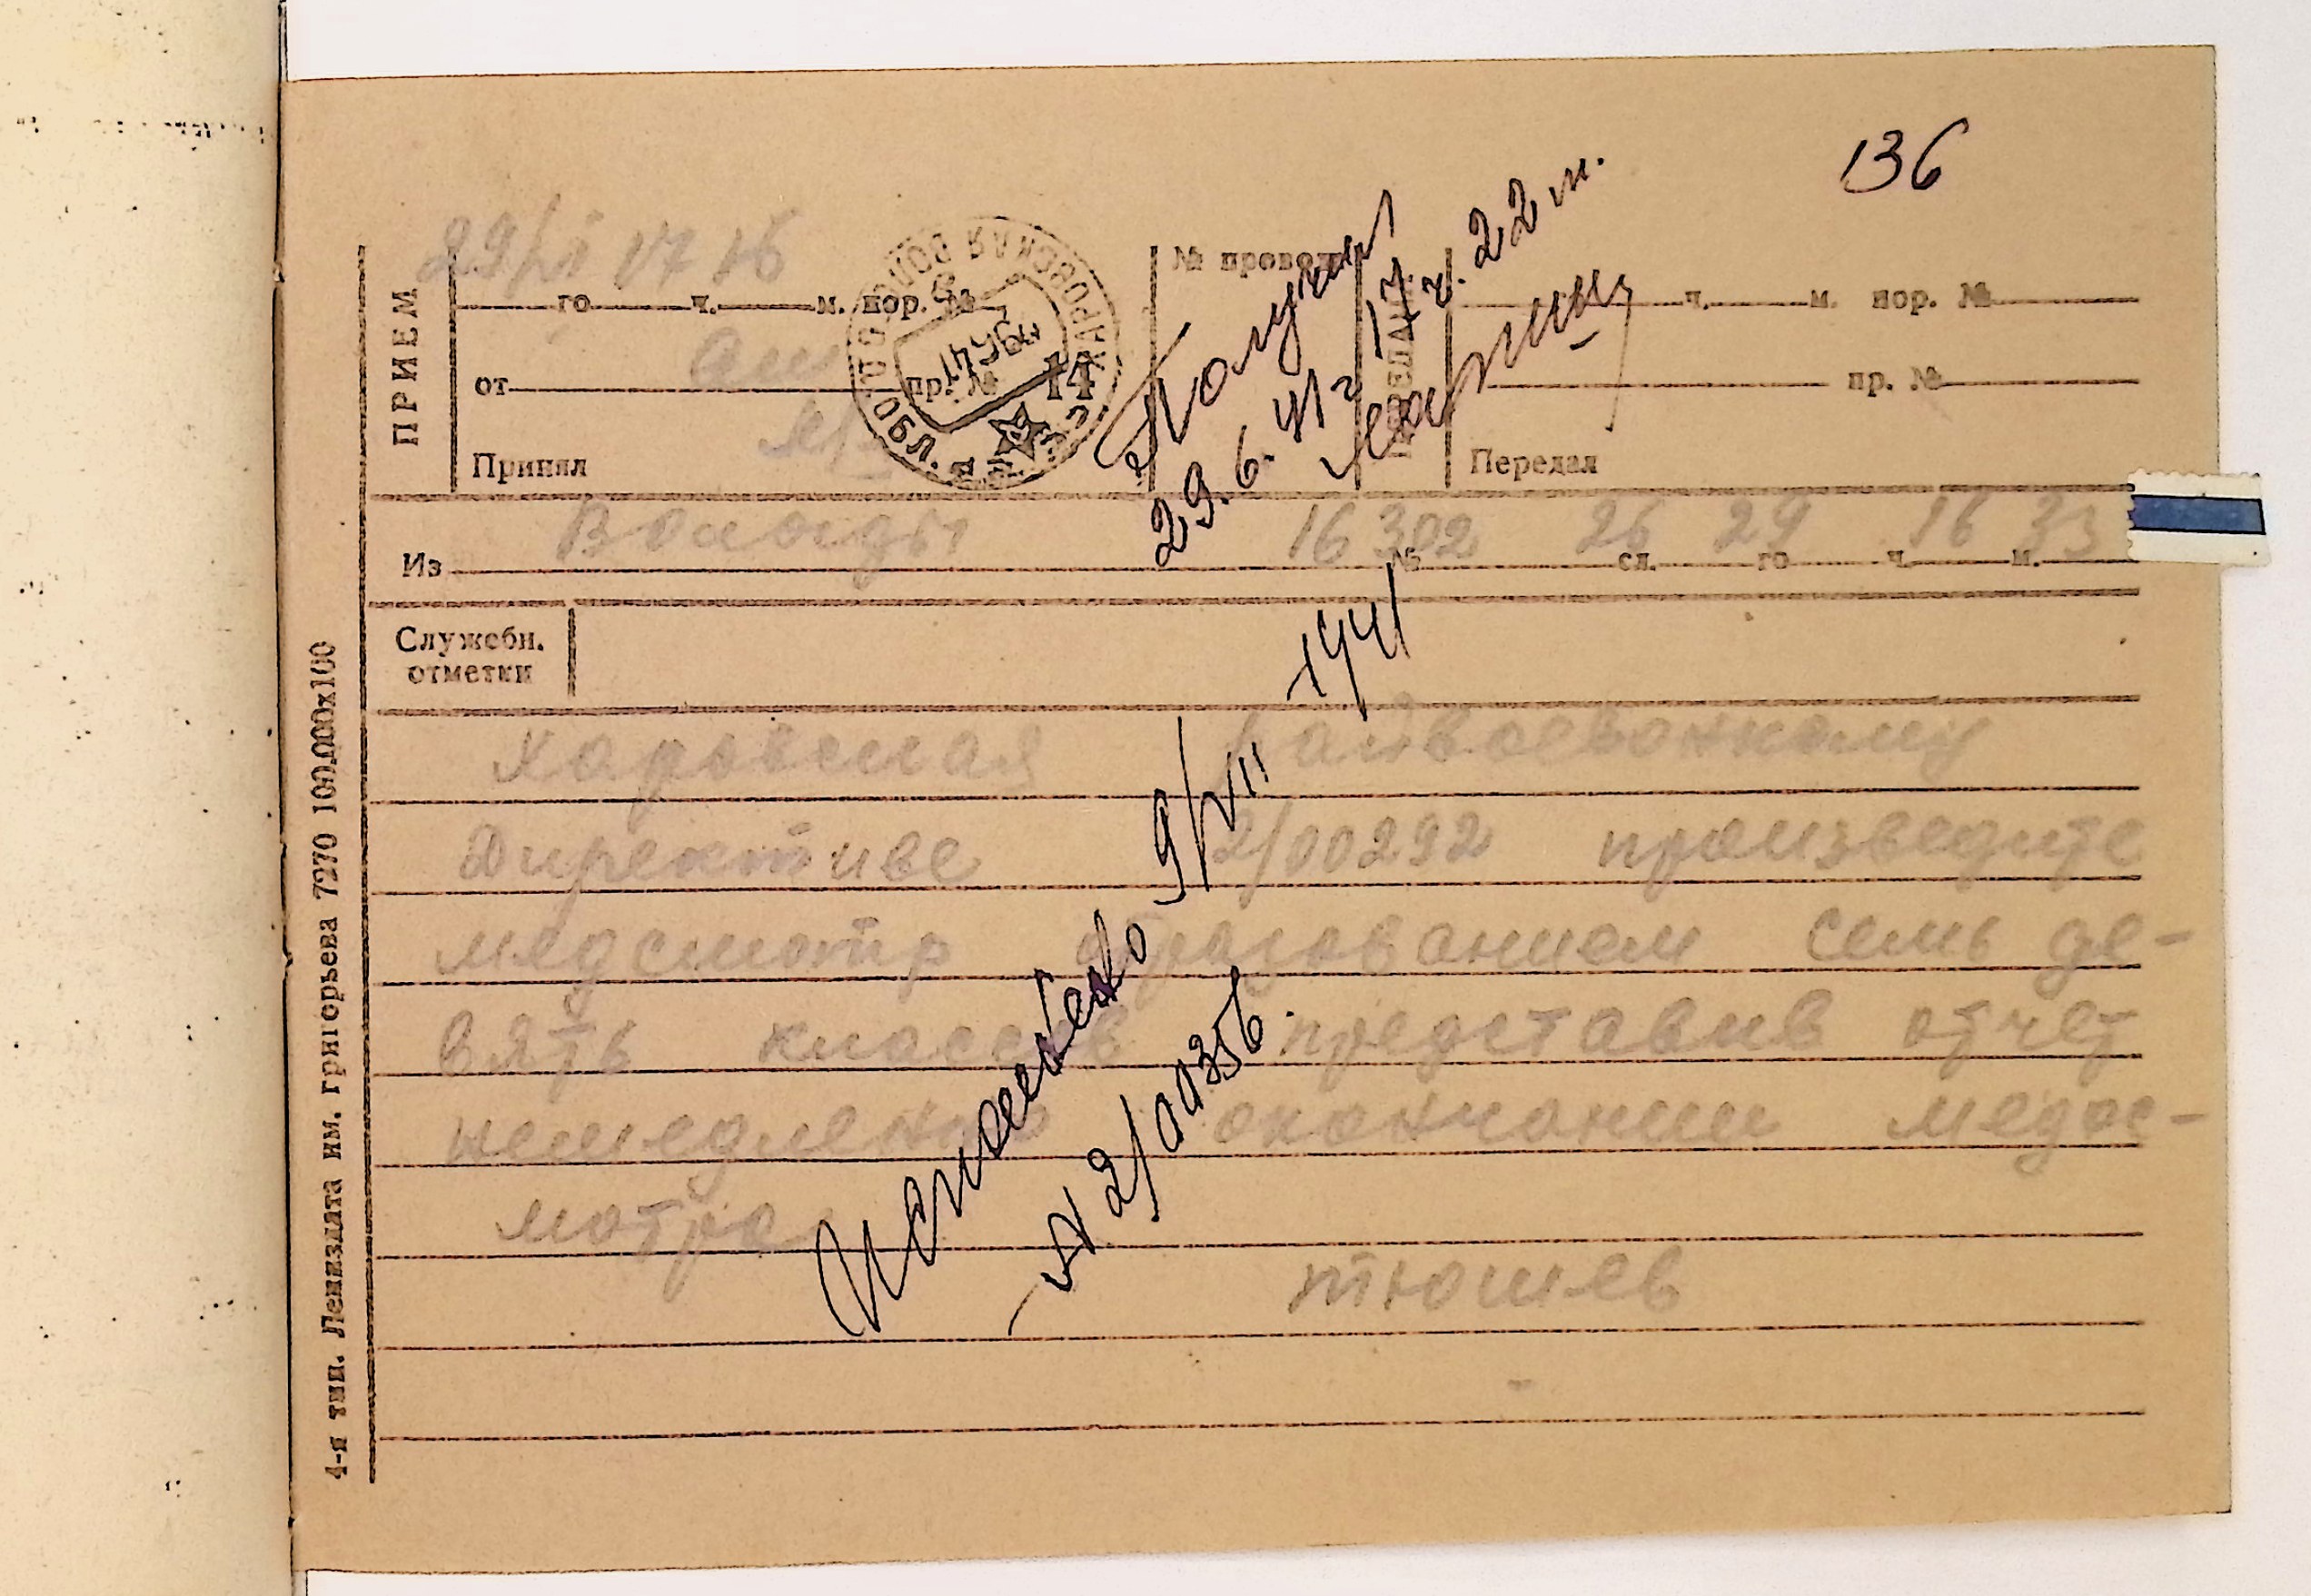 136
29/VI 17 16
ПРИЕМ
го ч. м. пор. №
№ провода
ч. м. пор. №
от пр. №
пр. №
Принял
Передал
ХАРОВСКАЯ ВОЛОГ. ОБЛ.
29 6 41
14
Получил
29.6.41 г 17 ч. 22 м.
Из Вологды 16 № 302 26 сл. 29 го 16 ч. 33 м.
Служебн.
отметки
Харовская Райвоенкому
Директиве 2/00292 произведите
медсмотр образованием семь де-
вять классов представив отчет
немедленно окончании медос-
мотра
тюшев
Исполнено 9/VII 1941
№ 2/00356.
4-я тип. Лениздата им. григорьева 7270 100.000х100